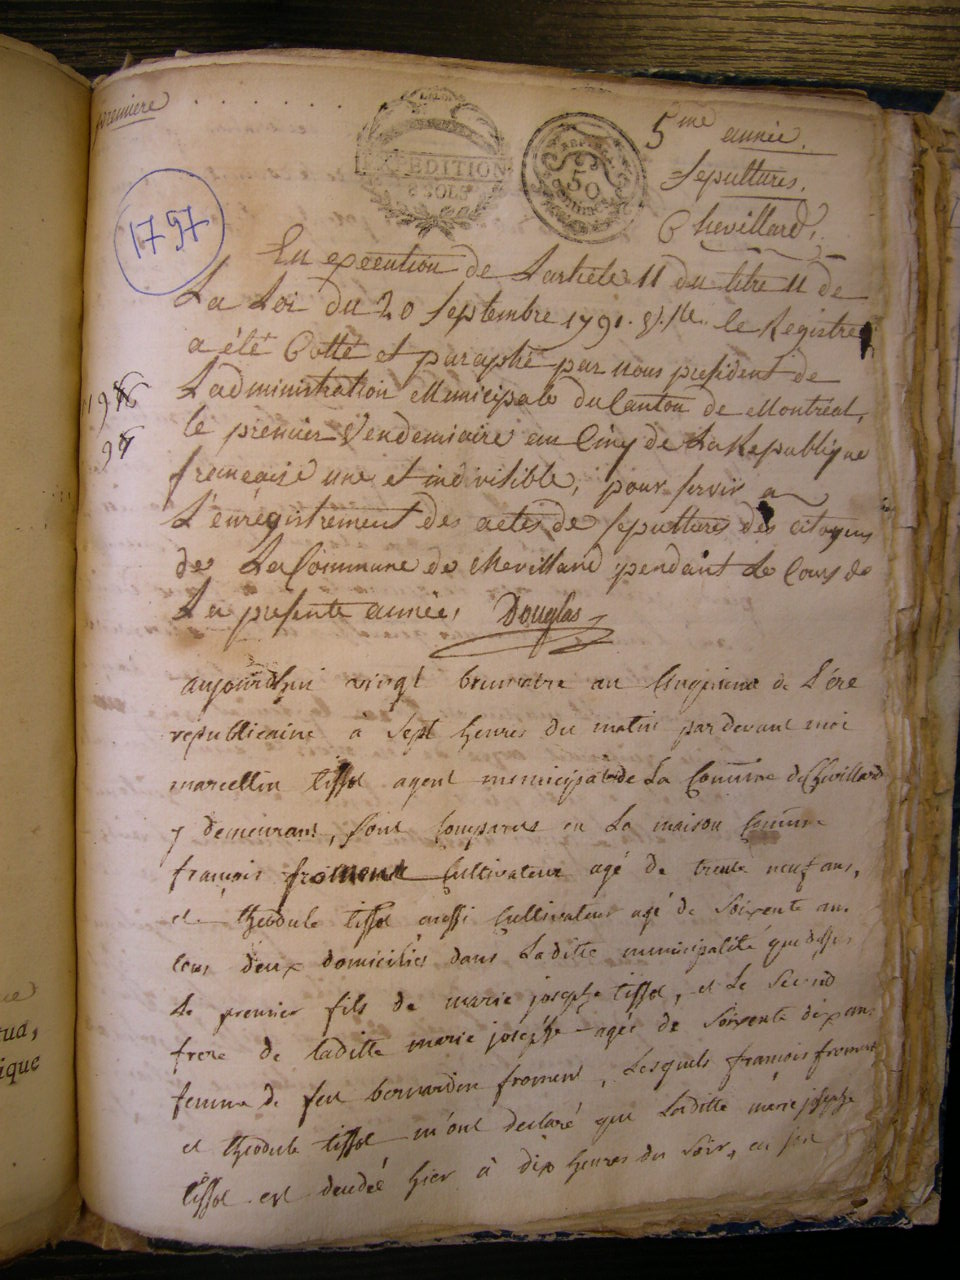 premiere
5me année.
Sepultures.
Chevillard.
EXPEDITION
8 SOLS
50
1797
En execution de Larticle 11 du titre 11 de
La Loi du 20 Septembre 1791. le Registre
a été Cotté et paraphé par nous president de
Ladministration Municipale du Canton de Montréal,
le premier Vendemiaire an Cinq de La Republique
francaise une et indivisible, pour servir a
L'enregistrement des actes de sepultures des citoyens
de La Commune de Chevillard pendant Le Cours de
La presente année, Douglas
aujourdhui vingt brumaire an Cinquieme de L'ére
republicaine a Sept heures du matin par devant moi
marcellin tissot agent municipal de La Comune de Chevillard
y demeurant, sont Comparus en La maison Comune
francois froment Cultivateur agé de trente neuf ans,
et théodule tissot aussi Cultivateur agé de Soixente ans
tous deux domiciliés dans Laditte municipalité
Le premier fils de marie josephe tissot, et Le Second
frere de laditte marie josephe agée de Soixente dix ans
femme de feu bernardin froment, Lesquels francois froment
et theodule tissot m'ont declaré que Laditte marie josephe
tissot est decedée hier à dix heures du Soir, en son